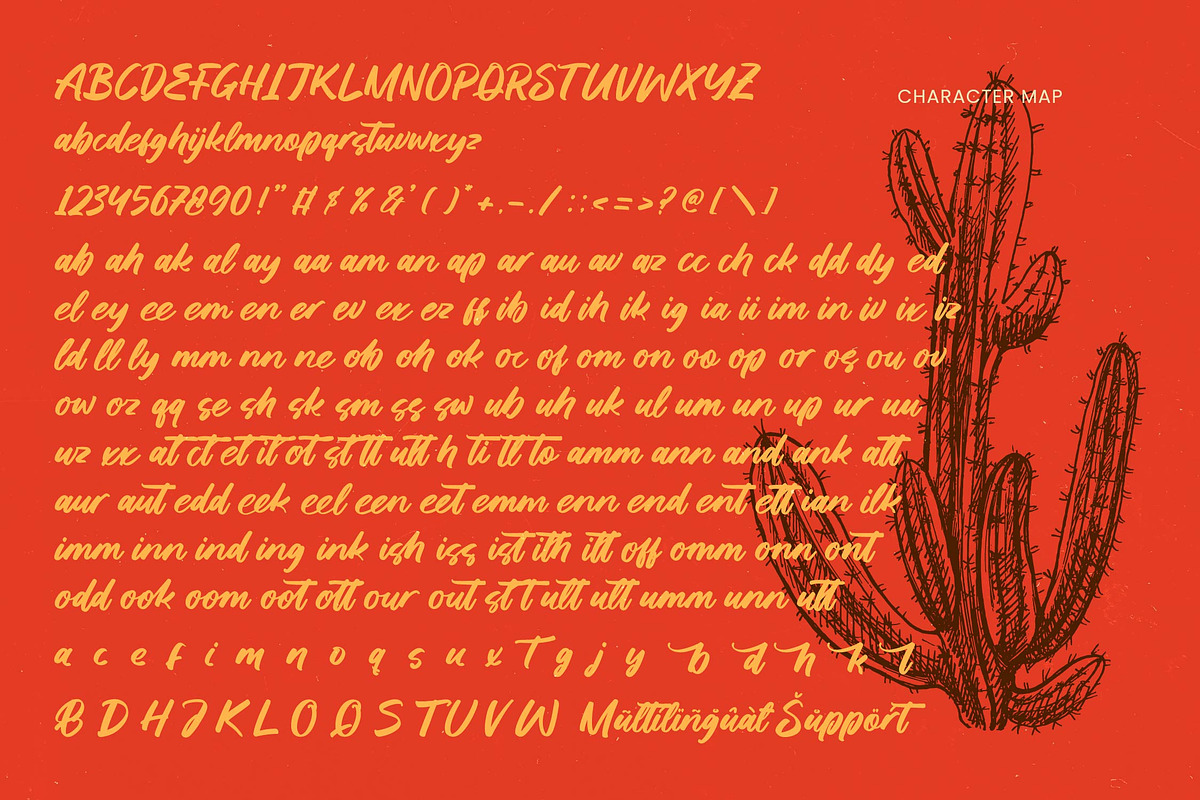 CHARACTER MAP
ABCDEFGHIJKLMNOPQRSTUVWXYZ
abcdefghijklmnopqrstuvwxyz
1234567890!" # $ % &' ( )* +,-./ :;<=>?@[\]
ab ah ak al ay aa am an ap ar au av az cc ch ck dd dy ed
el ey ee em en er ev ex ez ff ib id ih ik ig ia ii im in iv ix iz
ld ll ly mm nn ne ob oh ok oc of om on oo op or os ou ov
ow oz qq se sh sk sm ss sw ub uh uk ul um un up ur uu
uz xx at ct et it ot st tt utt h ti tt to amm ann and ank att
aur aut edd eek eel een eet emm enn end ent ett ian ilk
imm inn ind ing ink ish iss ist ith itt off omm onn ont
odd ook oom oot ott our out st t ult utt umm unn utt
a c e f i m n o q s u x T g j y b d h k l
B D H J K L O Q S T U V W Mũltilïñgûàt Šůppört